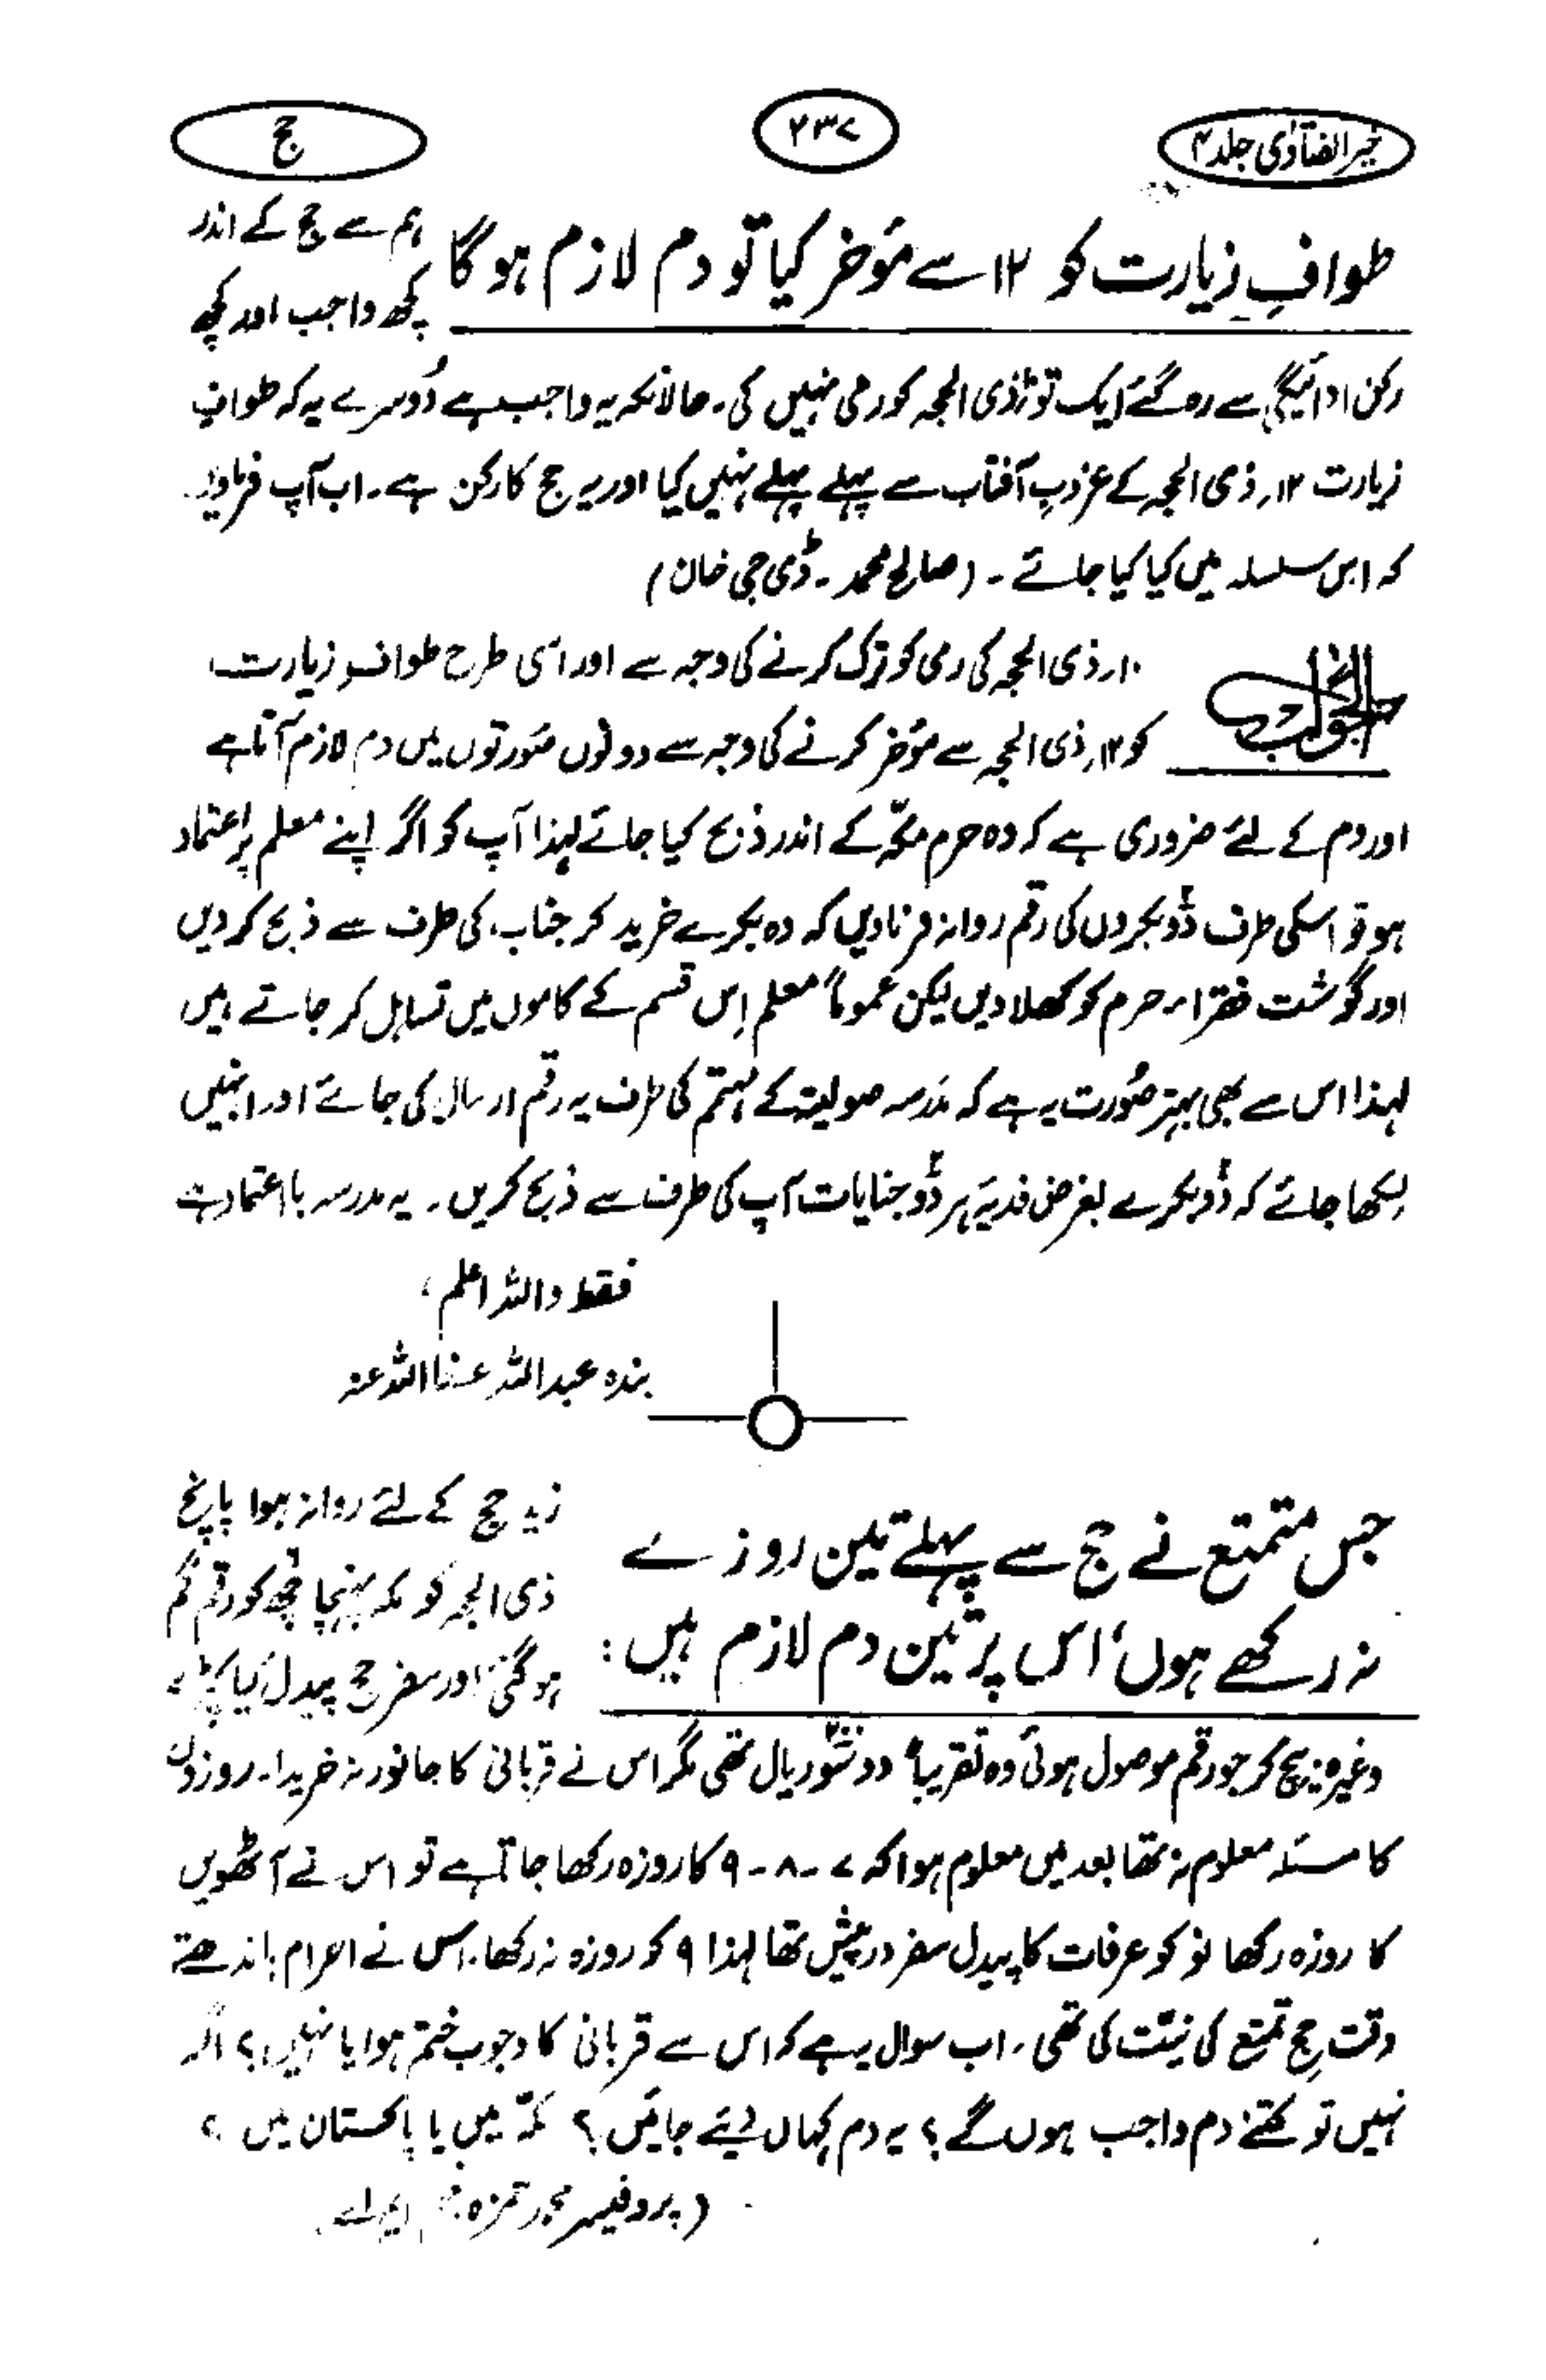 خیر الفتاوٰی جلد ۴
۲۳۷
حج
طوافِ زیارت کو ۱۲ سے مؤخر کیا تو دم لازم ہوگا
ہم سے حج کے اندر
کچھ واجب اور کچھ
رکن ادائیگی سے رہ گئے ایک تو ۱۰ ذی الحجہ کو رمی نہیں کی۔ حالانکہ یہ واجب ہے دُوسرے یہ کہ طوافِ
زیارت ۱۲ ذی الحجہ کے غروبِ آفتاب سے پہلے پہلے نہیں کیا اور یہ حج کا رکن ہے۔ اب آپ فرماویں
کہ اس سلسلہ میں کیا کیا جائے۔ (صالح محمد۔ ڈی جی خان)
الجواب
۱۰ ذی الحجہ کی رمی کو ترک کرنے کی وجہ سے اور اسی طرح طوافِ زیارت
کو ۱۲ ذی الحجہ سے مؤخر کرنے کی وجہ سے دونوں صُورتوں میں دم لازم آتا ہے
اور دم کے لئے ضروری ہے کہ وہ حرم مکّہ کے اندر ذبح کیا جائے لہٰذا آپ کو اگر اپنے معلم پر اعتماد
ہو تو اسکی طرف دُو بکروں کی رقم روانہ فرما دیں کہ وہ بکرے خرید کر جناب کی طرف سے ذبح کر دیں
اور گوشت فقراء حرم کو کھلا دیں لیکن عموماً معلم اِس قسم کے کاموں میں تساہل کر جاتے ہیں
لہٰذا اس سے بھی بہتر صُورت یہ ہے کہ مدرسہ صولیتہ کے مہتمم کی طرف یہ رقم ارسال کی جائے اور انہیں
لکھا جائے کہ دُو بکرے بغرض فدیہ ہر دُو جنایات آپ کی طرف سے ذبح کریں۔ یہ مدرسہ با اعتماد ہے
فقط واللہ اعلم،
بندہ عبداللہ عفا اللہ عنہ
جس متمتع نے حج سے پہلے تین روزے
نہ رکھے ہوں، اس پر تین دم لازم ہیں:
زید حج کے لئے روانہ ہوا پانچ
ذی الحجہ کو مکہ پہنچا چھ کو رقم گم
ہو گئی اور سفر حج پیدل کیا
وغیرہ بیچ کر جو رقم موصول ہوئی وہ تقریباً دو سَو ریال تھی مگر اس نے قربانی کا جانور نہ خریدا۔ روزوں
کا مسئلہ معلوم نہ تھا بعد میں معلوم ہوا کہ ۷-۸-۹ کا روزہ رکھا جاتا ہے تو اس نے آٹھویں
کا روزہ رکھا نو کو عرفات کا پیدل سفر درپیش تھا لہٰذا ۹ کو روزہ نہ رکھا۔ اس نے احرام باندھتے
وقت حجِ تمتع کی نیّت کی تھی، اب سوال یہ ہے کہ اس سے قربانی کا وجوب ختم ہوا یا نہیں؟ اگر
نہیں تو کتنے دم واجب ہوں گے؟ یہ دم کہاں دیئے جائیں؟ مکّہ میں یا پاکستان میں؟
(پروفیسر محمد حمزہ ایم اے